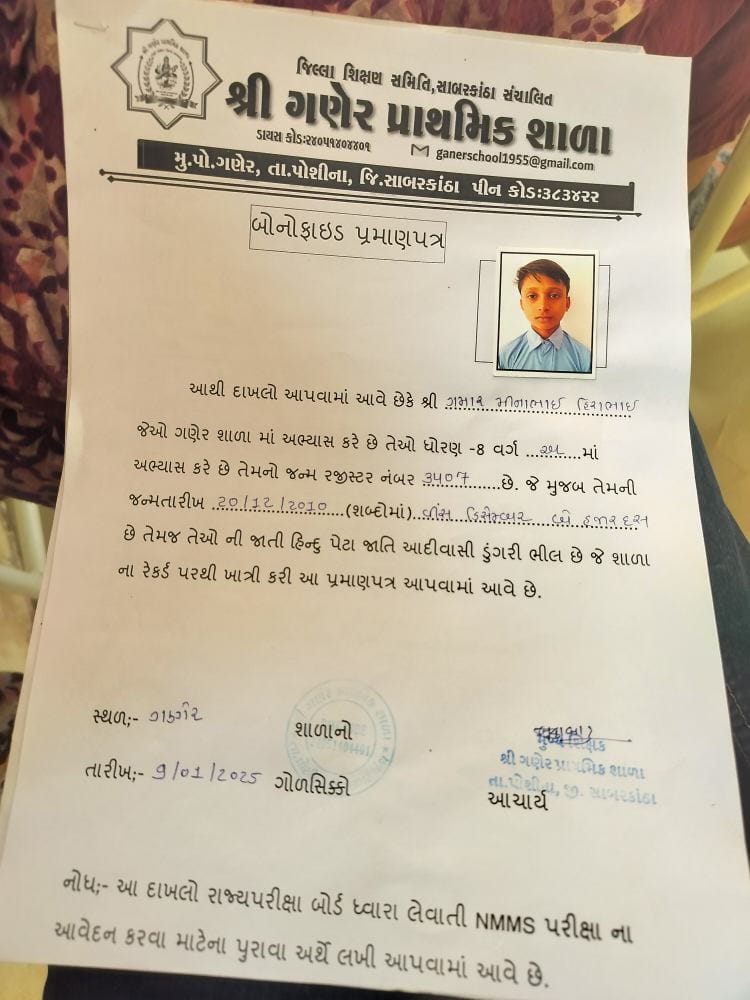 જિલ્લા શિક્ષણ સમિતિ,સાબરકાંઠા સંચાલિત
શ્રી ગણેર પ્રાથમિક શાળા
ડાયસ કોડ:૨૪૦૫૧૪૦૪૪૦૧ ganerschool1955@gmail.com
મુ.પો.ગણેર, તા.પોશીના, જિ.સાબરકાંઠા પીન કોડ:૩૮૩૪૨૨
બોનોફાઇડ પ્રમાણપત્ર
આથી દાખલો આપવામાં આવે છેકે શ્રી ગમાર મીનાભાઇ હિરાભાઇ
જેઓ ગણેર શાળા માં અભ્યાસ કરે છે તેઓ ધોરણ -8 વર્ગ અ માં
અભ્યાસ કરે છે તેમનો જન્મ રજીસ્ટર નંબર 3407 છે. જે મુજબ તેમની
જન્મતારીખ 20/12/2010 (શબ્દોમાં) વીસ ડિસેમ્બર બે હજાર દસ
છે તેમજ તેઓ ની જાતી હિન્દુ પેટા જાતિ આદીવાસી ડુંગરી ભીલ છે જે શાળા
ના રેકર્ડ પરથી ખાત્રી કરી આ પ્રમાણપત્ર આપવામાં આવે છે.
સ્થળ;- ગણેર
શાળાનો
તારીખ;- 9/01/2025 ગોળસિક્કો
મુખ્ય શિક્ષક
શ્રી ગણેર પ્રાથમિક શાળા
તા.પોશીના, જી. સાબરકાંઠા
આચાર્ય
નોધ;- આ દાખલો રાજ્યપરીક્ષા બોર્ડ ધ્વારા લેવાતી NMMS પરીક્ષા ના
આવેદન કરવા માટેના પુરાવા અર્થે લખી આપવામાં આવે છે.